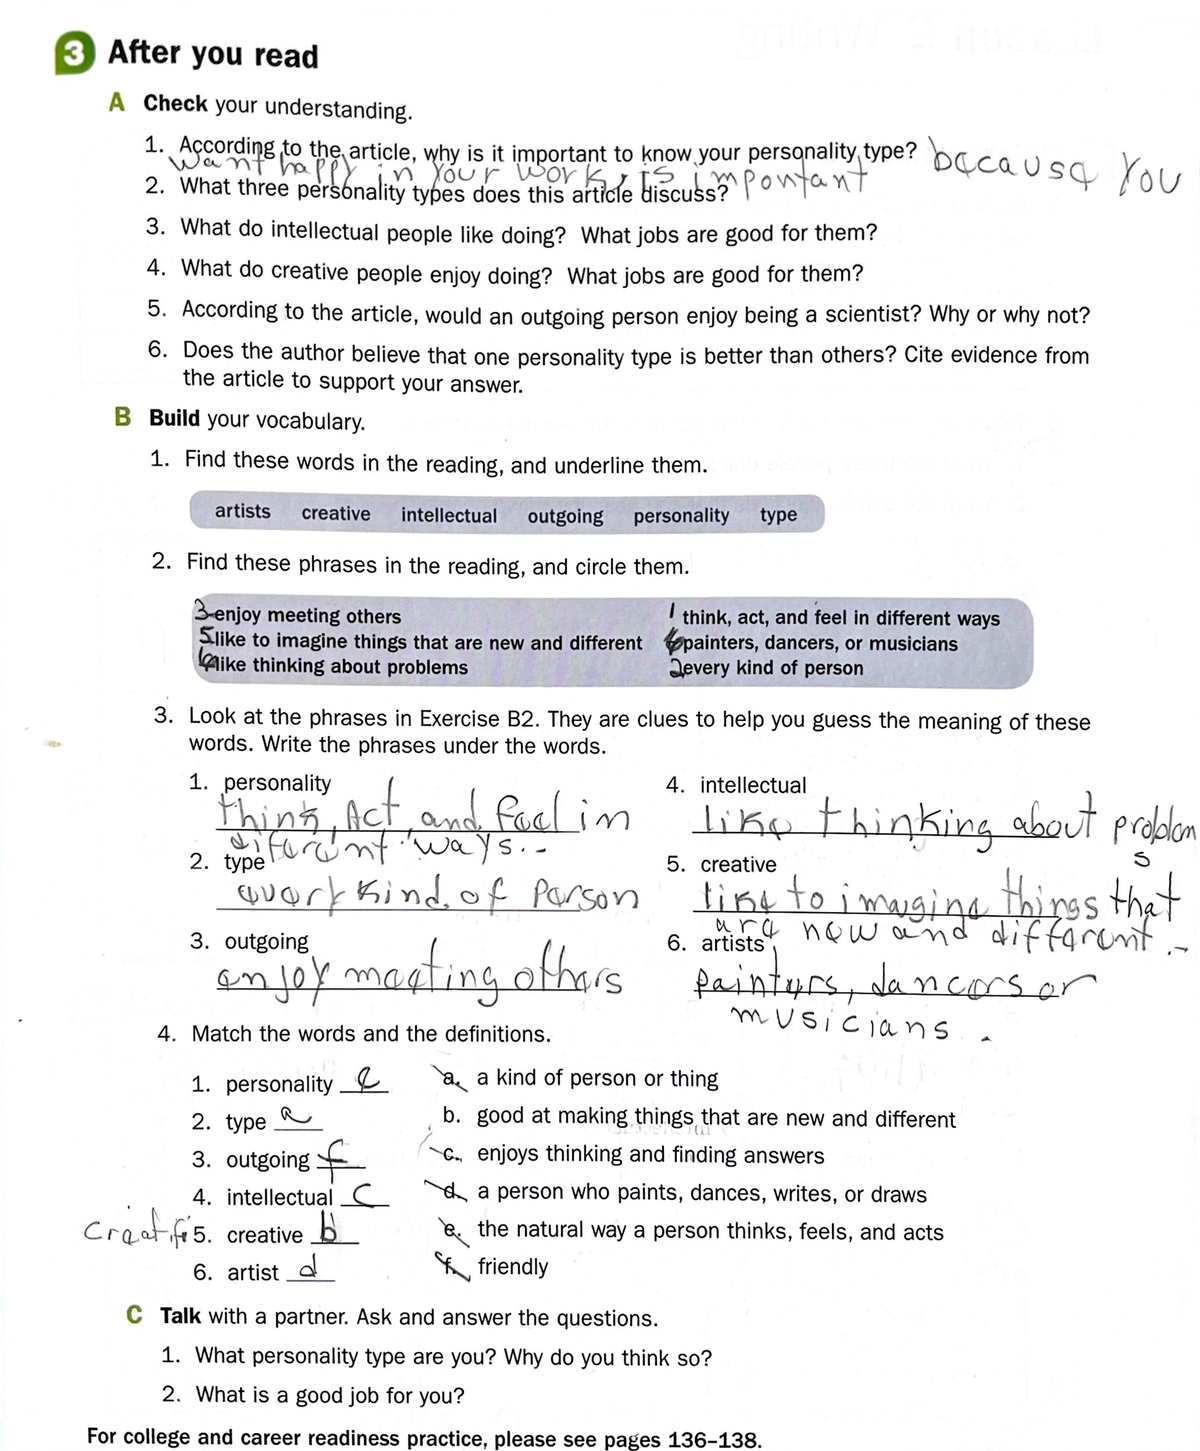 3 After you read
A Check your understanding.
1. According to the article, why is it important to know your personality type? because You
want happy in Your work, is important
2. What three personality types does this article discuss?
3. What do intellectual people like doing? What jobs are good for them?
4. What do creative people enjoy doing? What jobs are good for them?
5. According to the article, would an outgoing person enjoy being a scientist? Why or why not?
6. Does the author believe that one personality type is better than others? Cite evidence from
the article to support your answer.
B Build your vocabulary.
1. Find these words in the reading, and underline them.
artists creative intellectual outgoing personality type
2. Find these phrases in the reading, and circle them.
3 enjoy meeting others 1 think, act, and feel in different ways
5 like to imagine things that are new and different 6 painters, dancers, or musicians
like thinking about problems 2 every kind of person
3. Look at the phrases in Exercise B2. They are clues to help you guess the meaning of these
words. Write the phrases under the words.
1. personality 4. intellectual
think, Act, and feel in like thinking about problem
diferent ways. s
2. type 5. creative
every kind of person like to imagine things that
are new and different.
3. outgoing 6. artists
enjoy meeting others painters, dancers or
musicians.
4. Match the words and the definitions.
1. personality e a. a kind of person or thing
2. type a b. good at making things that are new and different
3. outgoing f c. enjoys thinking and finding answers
4. intellectual c d. a person who paints, dances, writes, or draws
5. creative b e. the natural way a person thinks, feels, and acts
6. artist d f. friendly
C Talk with a partner. Ask and answer the questions.
1. What personality type are you? Why do you think so?
2. What is a good job for you?
For college and career readiness practice, please see pages 136–138.